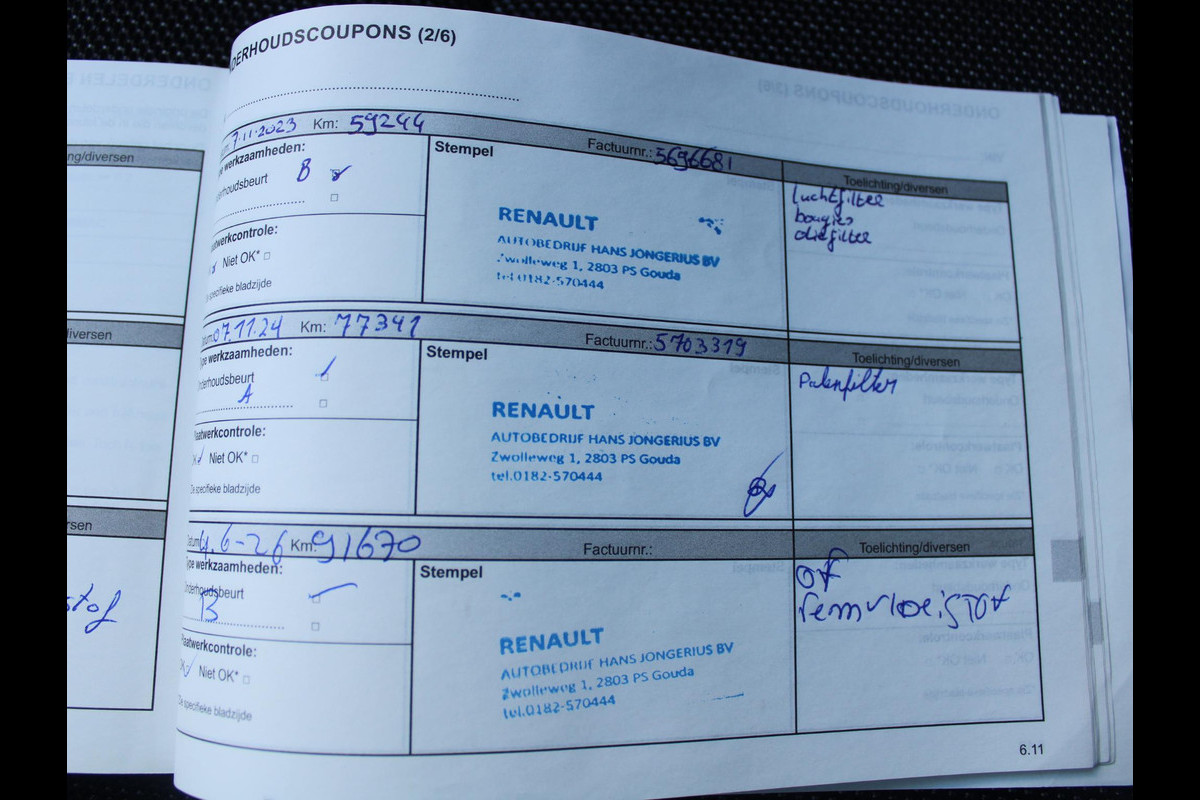 ONDERHOUDSCOUPONS (2/6)
7.11.2023 Km: 59244
Factuurnr.: 5696681
Toelichting/diversen
werkzaamheden:
Onderhoudsbeurt B
Stempel
luchtfilter
bougies
oliefilter
RENAULT
AUTOBEDRIJF HANS JONGERIUS BV
Zwolleweg 1, 2803 PS Gouda
tel.0182-570444
aatwerkcontrole:
Niet OK*
specifieke bladzijde
Datum: 07.11.24 Km: 77341
Factuurnr.: 5703319
Toelichting/diversen
Type werkzaamheden:
Onderhoudsbeurt
A
Stempel
Polenfilter
RENAULT
AUTOBEDRIJF HANS JONGERIUS BV
Zwolleweg 1, 2803 PS Gouda
tel.0182-570444
aatwerkcontrole:
OK Niet OK*
De specifieke bladzijde
Datum: 4.6-26 Km: 91670
Factuurnr.:
Toelichting/diversen
Type werkzaamheden:
Onderhoudsbeurt
B
Stempel
OF
remvloeistof
RENAULT
AUTOBEDRIJF HANS JONGERIUS BV
Zwolleweg 1, 2803 PS Gouda
tel.0182-570444
aatwerkcontrole:
OK Niet OK*
De specifieke bladzijde
6.11
ng/diversen
diversen
rsen
stof